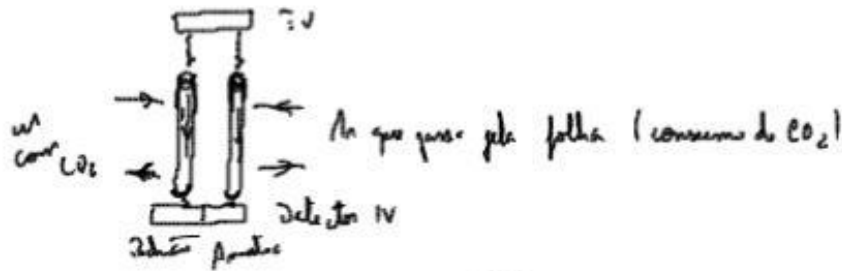 IV
ar
com CO2
Ar que passa pela folha (consumo de CO2)
Detector IV
Padrão Amostra